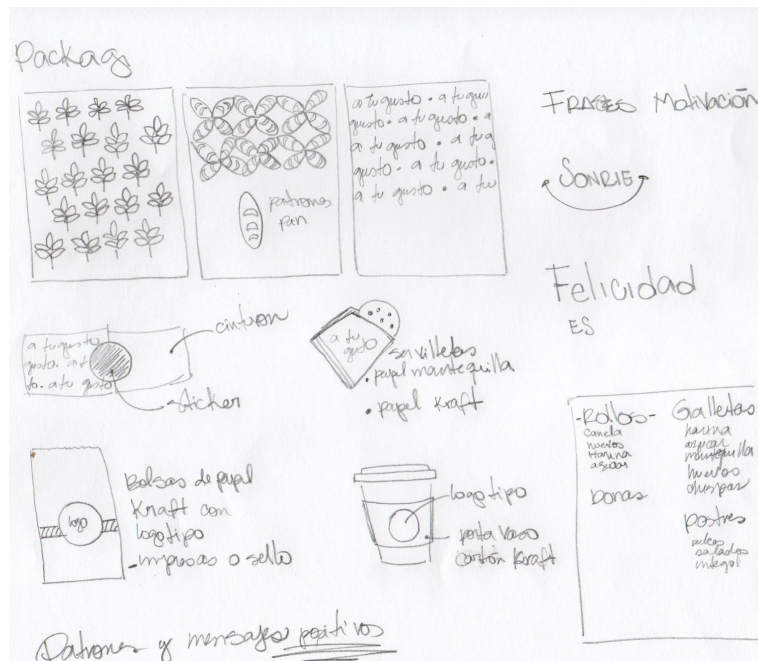 Packag
a tu gusto • a tu gus
gusto • a tu gusto • a
a tu gusto • a tu g
gusto • a tu gusto •
a tu gusto • a tu
patrones
pan
FRASES Motivación
SONRIE
Felicidad
ES
a tu gusto
gusto • a t
to • a tu gusto
cinturon
sticker
a tu
gusto
servilletas
• papel mantequilla
• papel Kraft
Bolsas de papel
Kraft con
logotipo
- impresas o sello
logo
logotipo
porta vaso
cartón Kraft
- Rollos -
canela
huevos
Harina
azucar
Donas
Galletas
harina
azucar
mantequilla
huevos
chispas
postres
salados
Patrones y mensajes positivos